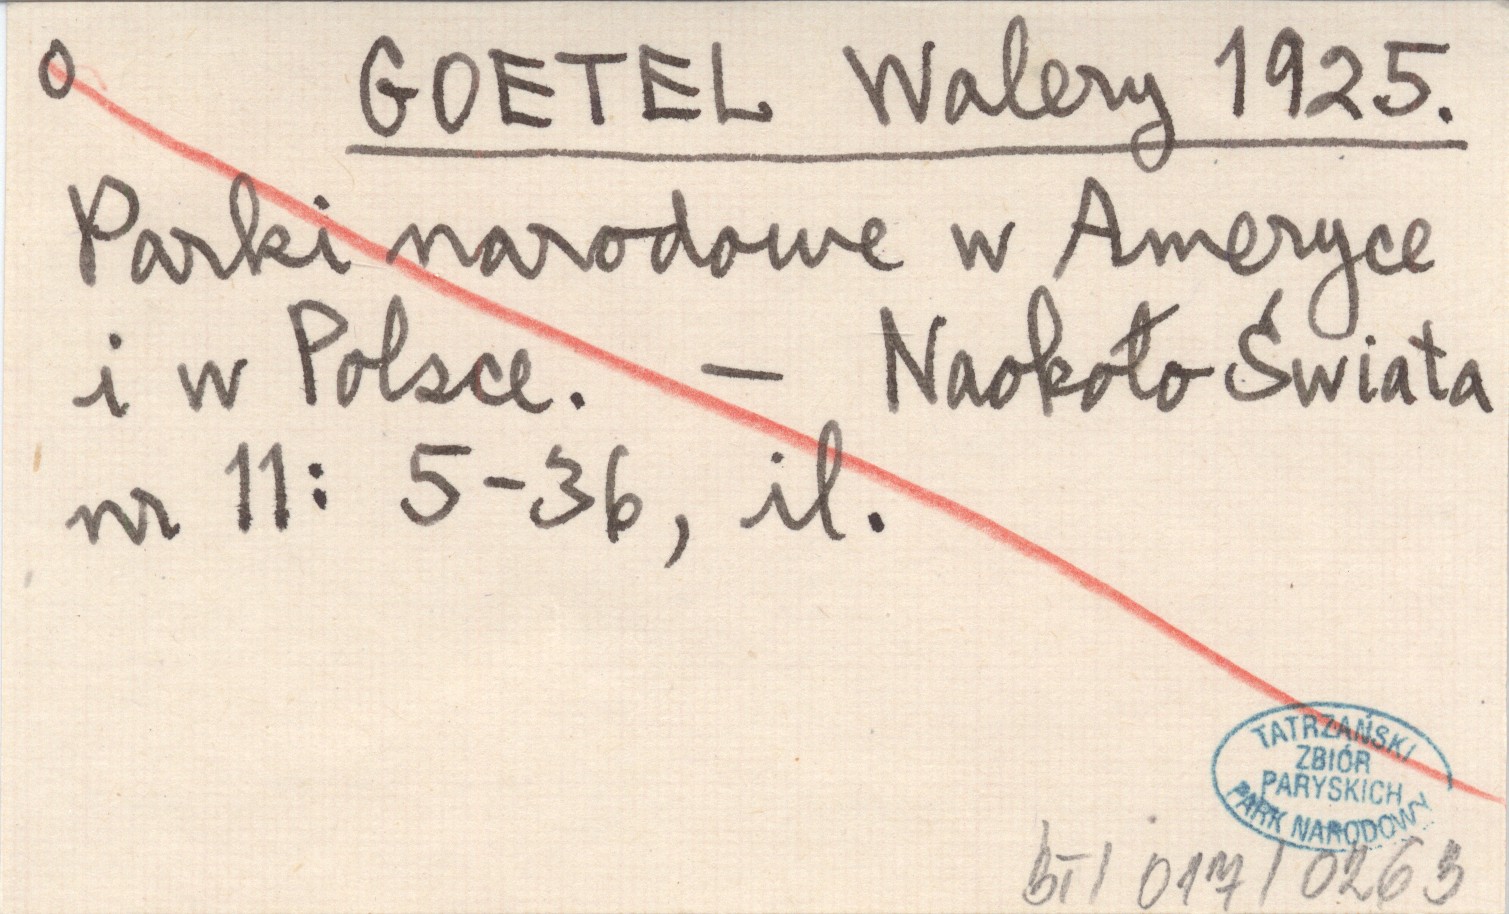 o GOETEL Walery 1925.
Parki narodowe w Ameryce
i w Polsce. – Naokoło Świata
nr 11: 5-36, il.
TATRZAŃSKI
ZBIÓR
PARYSKICH
PARK NARODOWY
BT/ 017 / 0263